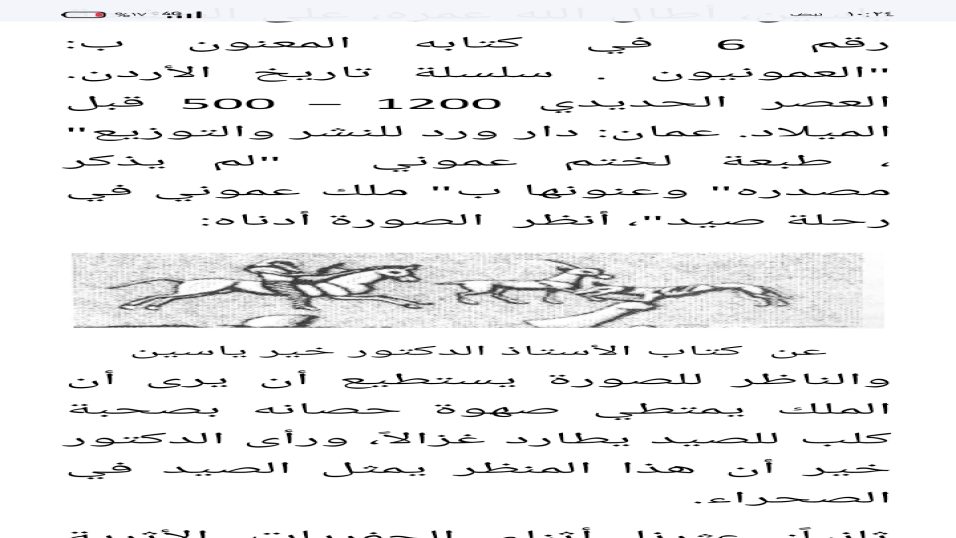 ١٠:٢٤ نبض 4G %١٧
رقم 6 في كتابه المعنون ب:
"العمونيون . سلسلة تاريخ الأردن.
العصر الحديدي 1200 – 500 قبل
الميلاد. عمان: دار ورد للنشر والتوزيع"
، طبعة لختم عموني "لم يذكر
مصدره" وعنونها ب" ملك عموني في
رحلة صيد"، أنظر الصورة أدناه:
عن كتاب الأستاذ الدكتور خير ياسين
والناظر للصورة يستطيع أن يرى أن
الملك يمتطي صهوة حصانه بصحبة
كلب للصيد يطارد غزالاً، ورأى الدكتور
خير أن هذا المنظر يمثل الصيد في
الصحراء.